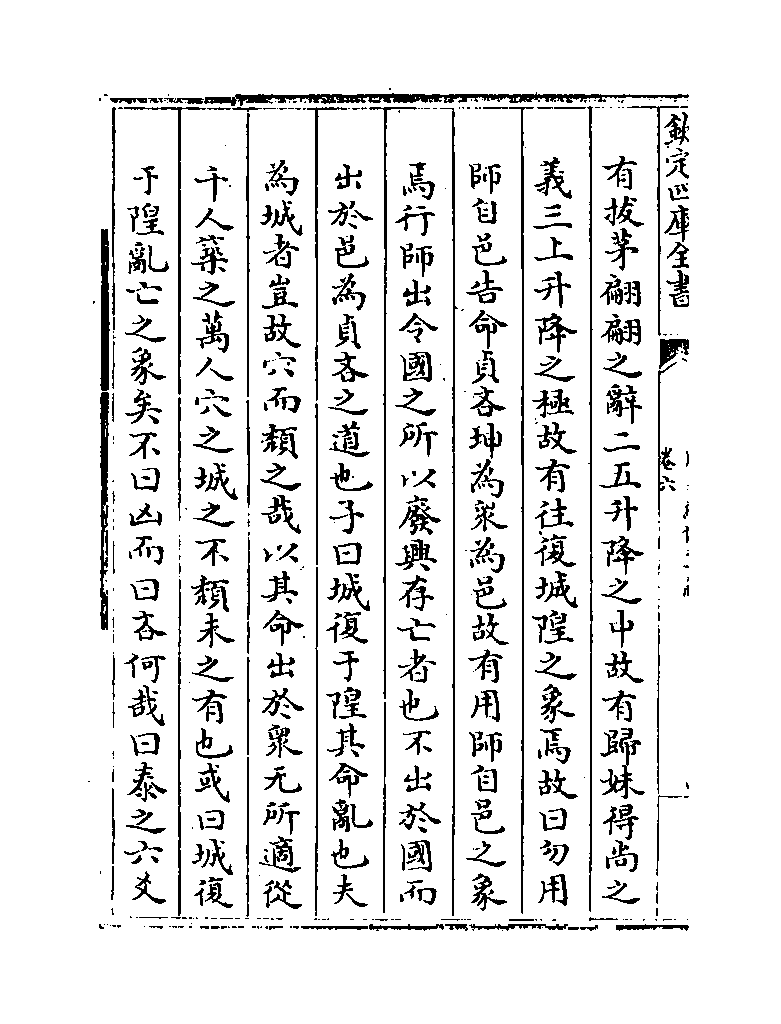 欽定四庫全書
卷六
有拔茅翩翩之辭二五升降之中故有歸妹得尚之
義三上升降之極故有往復城隍之象焉故曰勿用
師自邑告命貞吝坤為衆為邑故有用師自邑之象
焉行師出令國之所以廢興存亡者也不出於國而
出於邑為貞吝之道也子曰城復于隍其命亂也夫
為城者豈故穴而頽之哉以其命出於衆无所適從
千人築之萬人穴之城之不頽未之有也或曰城復
于隍亂亡之象矣不曰凶而曰吝何哉曰泰之六爻